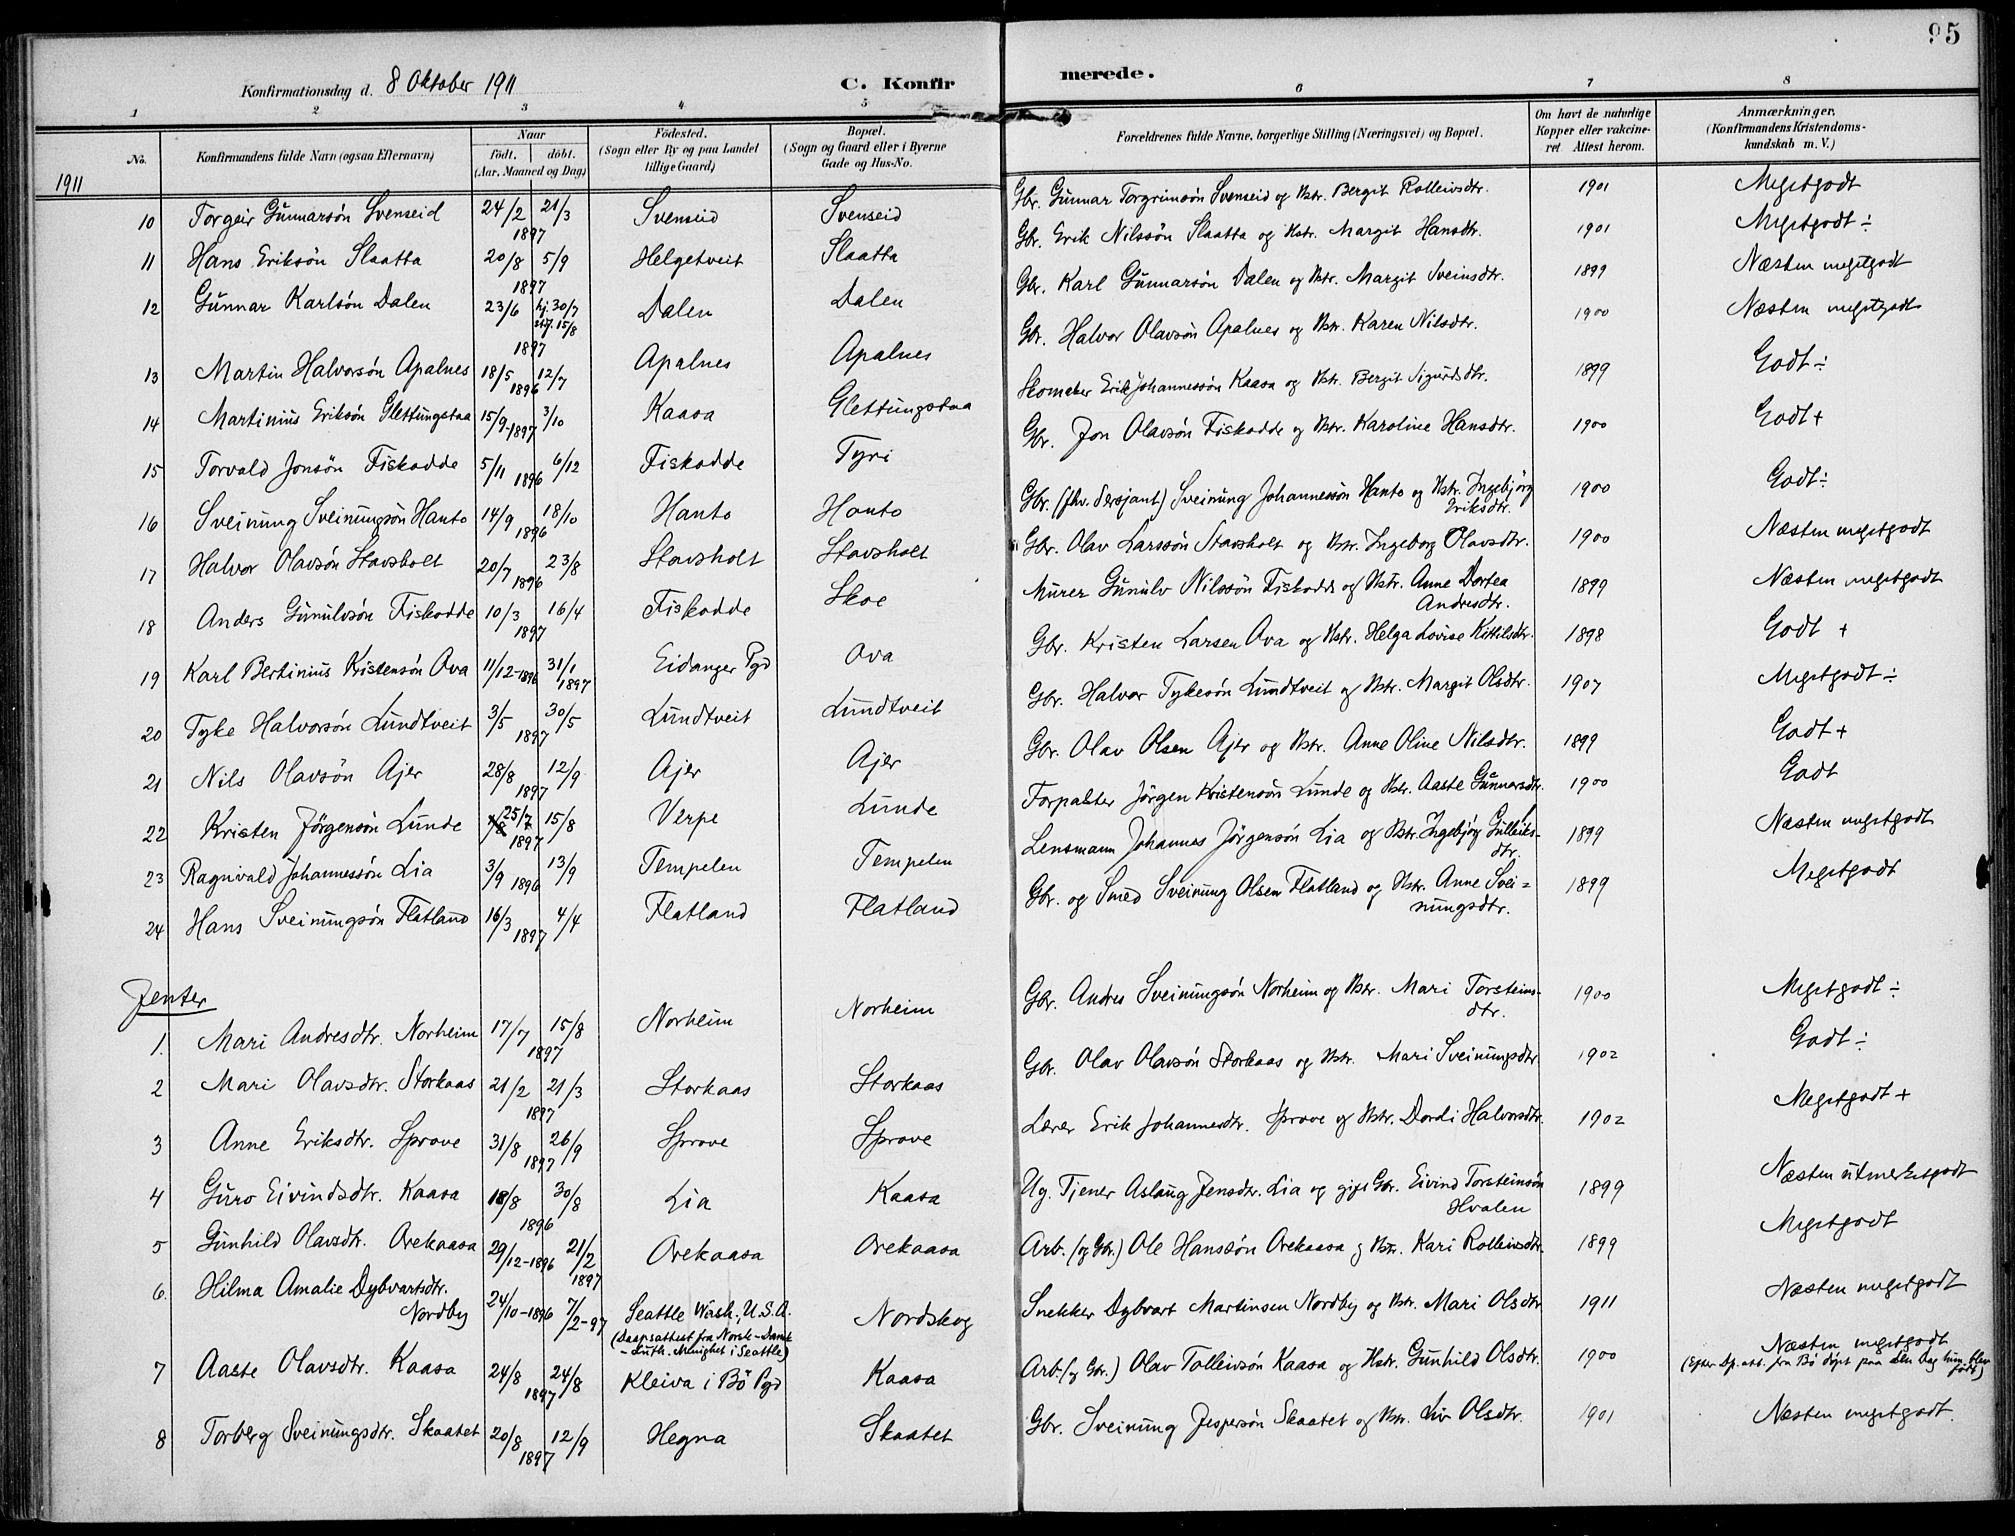 95
Konfirmationsdag d. 8 Oktober 1911
C. Konfirmerede.
1 2 3 4 5 6 7 8
No.
Konfirmandens fulde Navn (ogsaa Efternavn)
Naar
födt. döbt.
(Aar, Maaned og Dag)
Födested.
(Sogn eller By og paa Landet
tillige Gaard)
Bopæl.
(Sogn og Gaard eller i Byerne
Gade og Hus-No.
Forældrenes fulde Navne, borgerlige Stilling (Næringsvei) og Bopæl.
Om havt de naturlige
Kopper eller vakcine-
ret Attest herom.
Anmærkninger.
(Konfirmandens Kristendoms-
kundskab m. V.)
1911
10 Torgeir Gunnarsön Svenseid 24/2 21/3 1897 Svenseid Svenseid Gbr. Gunnar Torgrimsön Svenseid og Hstr. Bergit Rolleivsdtr. 1901 Megetgodt
11 Hans Eriksön Slaatta 20/8 5/9 1897 Helgetveit Slaatta Gbr. Erik Nilssön Slaatta og Hstr. Margit Hansdtr. 1901 Megetgodt ÷
12 Gunnar Karlsön Dalen 23/6 hj. 30/7 stf. 15/8 1897 Dalen Dalen Gbr. Karl Gunnarsön Dalen og Hstr. Margit Sveinsdtr. 1899 Næsten megetgodt
13 Martin Halvorsön Apalnes 18/5 12/7 1896 Apalnes Apalnes Gbr. Halvor Olavsön Apalnes og Hstr. Karen Nilsdtr. 1900 Næsten megetgodt
14 Martinius Eriksön Glettungstaa 15/9-1897 3/10 Kaasa Glettungstaa Skomaker Erik Johannessön Kaasa og Hstr. Bergit Sigurdsdtr. 1899 Godt ÷
15 Torvald Jonsön Fiskodde 5/11 6/12 1896 Fiskodde Tyri Gbr. Jon Olavsön Fiskodde og Hstr. Karoline Hansdtr. 1900 Godt +
16 Sveinung Sveinungsön Hanto 14/9 18/10 1896 Hanto Hanto Gbr. (fhv. Sersjant) Sveinung Johannessön Hanto og Hstr. Ingebjörg
Eriksdtr. 1900 Godt ÷
17 Halvor Olavsön Stavsholt 20/7 23/8 1896 Stavsholt Stavsholt Gbr. Olav Larssön Stavsholt og Hstr. Ingeborg Olavsdtr. 1900 Næsten megetgodt
18 Anders Gunulvsön Fiskodde 10/3 16/4 1897 Fiskodde Skoe Murer Gunulv Nilssön Fiskodde og Hstr. Anne Dortea
Andresdtr. 1899 Næsten megetgodt
19 Karl Bertinius Kristensön Ova 11/12-1896 31/1 1897 Eidanger Pgd Ova Gbr. Kristen Larsen Ova og Hstr. Helga Lovise Kittilsdtr. 1898 Godt +
20 Tyke Halvorsön Lundtveit 3/5 30/5 1897 Lundtveit Lundtveit Gbr. Halvor Tykesön Lundtveit og Hstr. Margit Olsdtr. 1907 Megetgodt ÷
21 Nils Olavsön Ajer 28/8 12/9 1897 Ajer Ajer Gbr. Olav Olsen Ajer og Hstr. Anne Oline Nilsdtr. 1899 Godt +
22 Kristen Jörgensön Lunde 25/7 15/8 1897 Verpe Lunde Forpakter Jörgen Kristensön Lunde og Hstr. Aaste Gunnarsdtr. 1900 Godt
23 Ragnvald Johannessön Lia 3/9 13/9 1896 Tempelen Tempelen Lensmann Johannes Jörgensön Lia og Hstr. Ingebjörg Gulleiks-
dtr. 1899 Næsten megetgodt
24 Hans Sveinungsön Flatland 16/3 4/4 1897 Flatland Flatland Gbr. og Smed Sveinung Olsen Flatland og Hstr. Anne Svei=
nungsdtr. 1899 Megetgodt
Jenter
1. Mari Andresdtr. Norheim 17/7 15/8 1897 Norheim Norheim Gbr. Andres Sveinungsön Norheim og Hstr. Mari Torsteins-
dtr. 1900 Megetgodt ÷
2 Mari Olavsdtr. Storkaas 21/2 21/3 1897 Storkaas Storkaas Gbr. Olav Olavsön Storkaas og Hstr. Mari Sveinungsdtr 1902 Godt ÷
3 Anne Eriksdtr. Sprove 31/8 26/9 1897 Sprove Sprove Lærer Erik Johannesdtr. Sprove og Hstr. Dordi Halvorsdtr. 1902 Megetgodt +
4 Guro Eivindsdtr. Kaasa 18/8 30/8 1896 Lia Kaasa Ug. Tjener Aslaug Jensdtr. Lia og gift Gbr. Eivind Torsteinsön
Hvalen 1899 Næsten utmerketgodt
5 Gunhild Olavsdtr. Orekaasa 29/12-1896 21/2 1897 Orekaasa Orekaasa Arb. (og Gbr.) Ole Hanssön Orekaasa og Hstr. Kari Rolleivsdtr. 1899 Megetgodt
6. Hilma Amalie Dybvartsdtr.
Nordby 24/10-1896 7/2-97 Seattle Wash., U.S.A.
(Daapsattest fra Norsk-Dansk
-Luth. Menighet i Seattle) Nordskog Snekker Dybvart Martinsen Nordby og Hstr. Mari Olsdtr 1911 Næsten megetgodt
7 Aaste Olavsdtr. Kaasa 24/8 24/8 1897 Kleiva i Bö Pgd Kaasa Arb. (og Gbr.) Olav Tolleivsön Kaasa og Hstr. Gunhild Olsdtr. 1900 Næsten megetgodt
(Efter Dp.att. fra Bö döpt paa den Dag hun blev
født)
8 Torberg Sveinungsdtr. Skaatet 20/8 12/9 1897 Hegna Skaatet Gbr. Sveinung Jespersön Skaatet og Hstr. Liv Olsdtr. 1901 Næsten megetgodt.